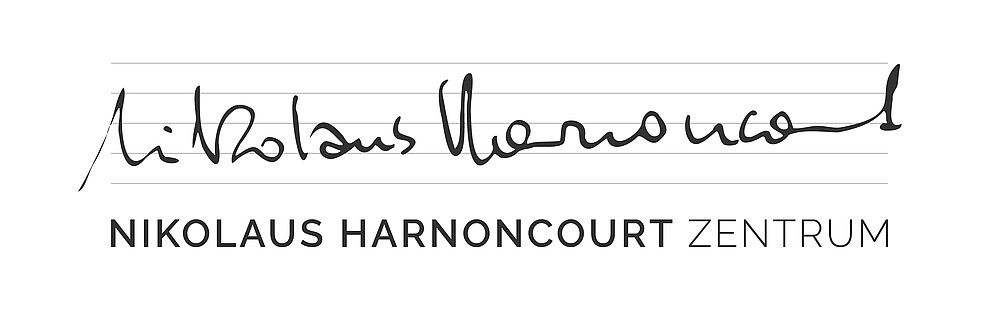 Nikolaus Harnoncourt
NIKOLAUS HARNONCOURT ZENTRUM